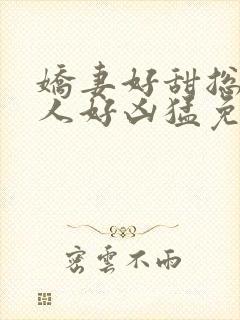 嬌妻好甜摠
人好凶猛免
密雲不雨